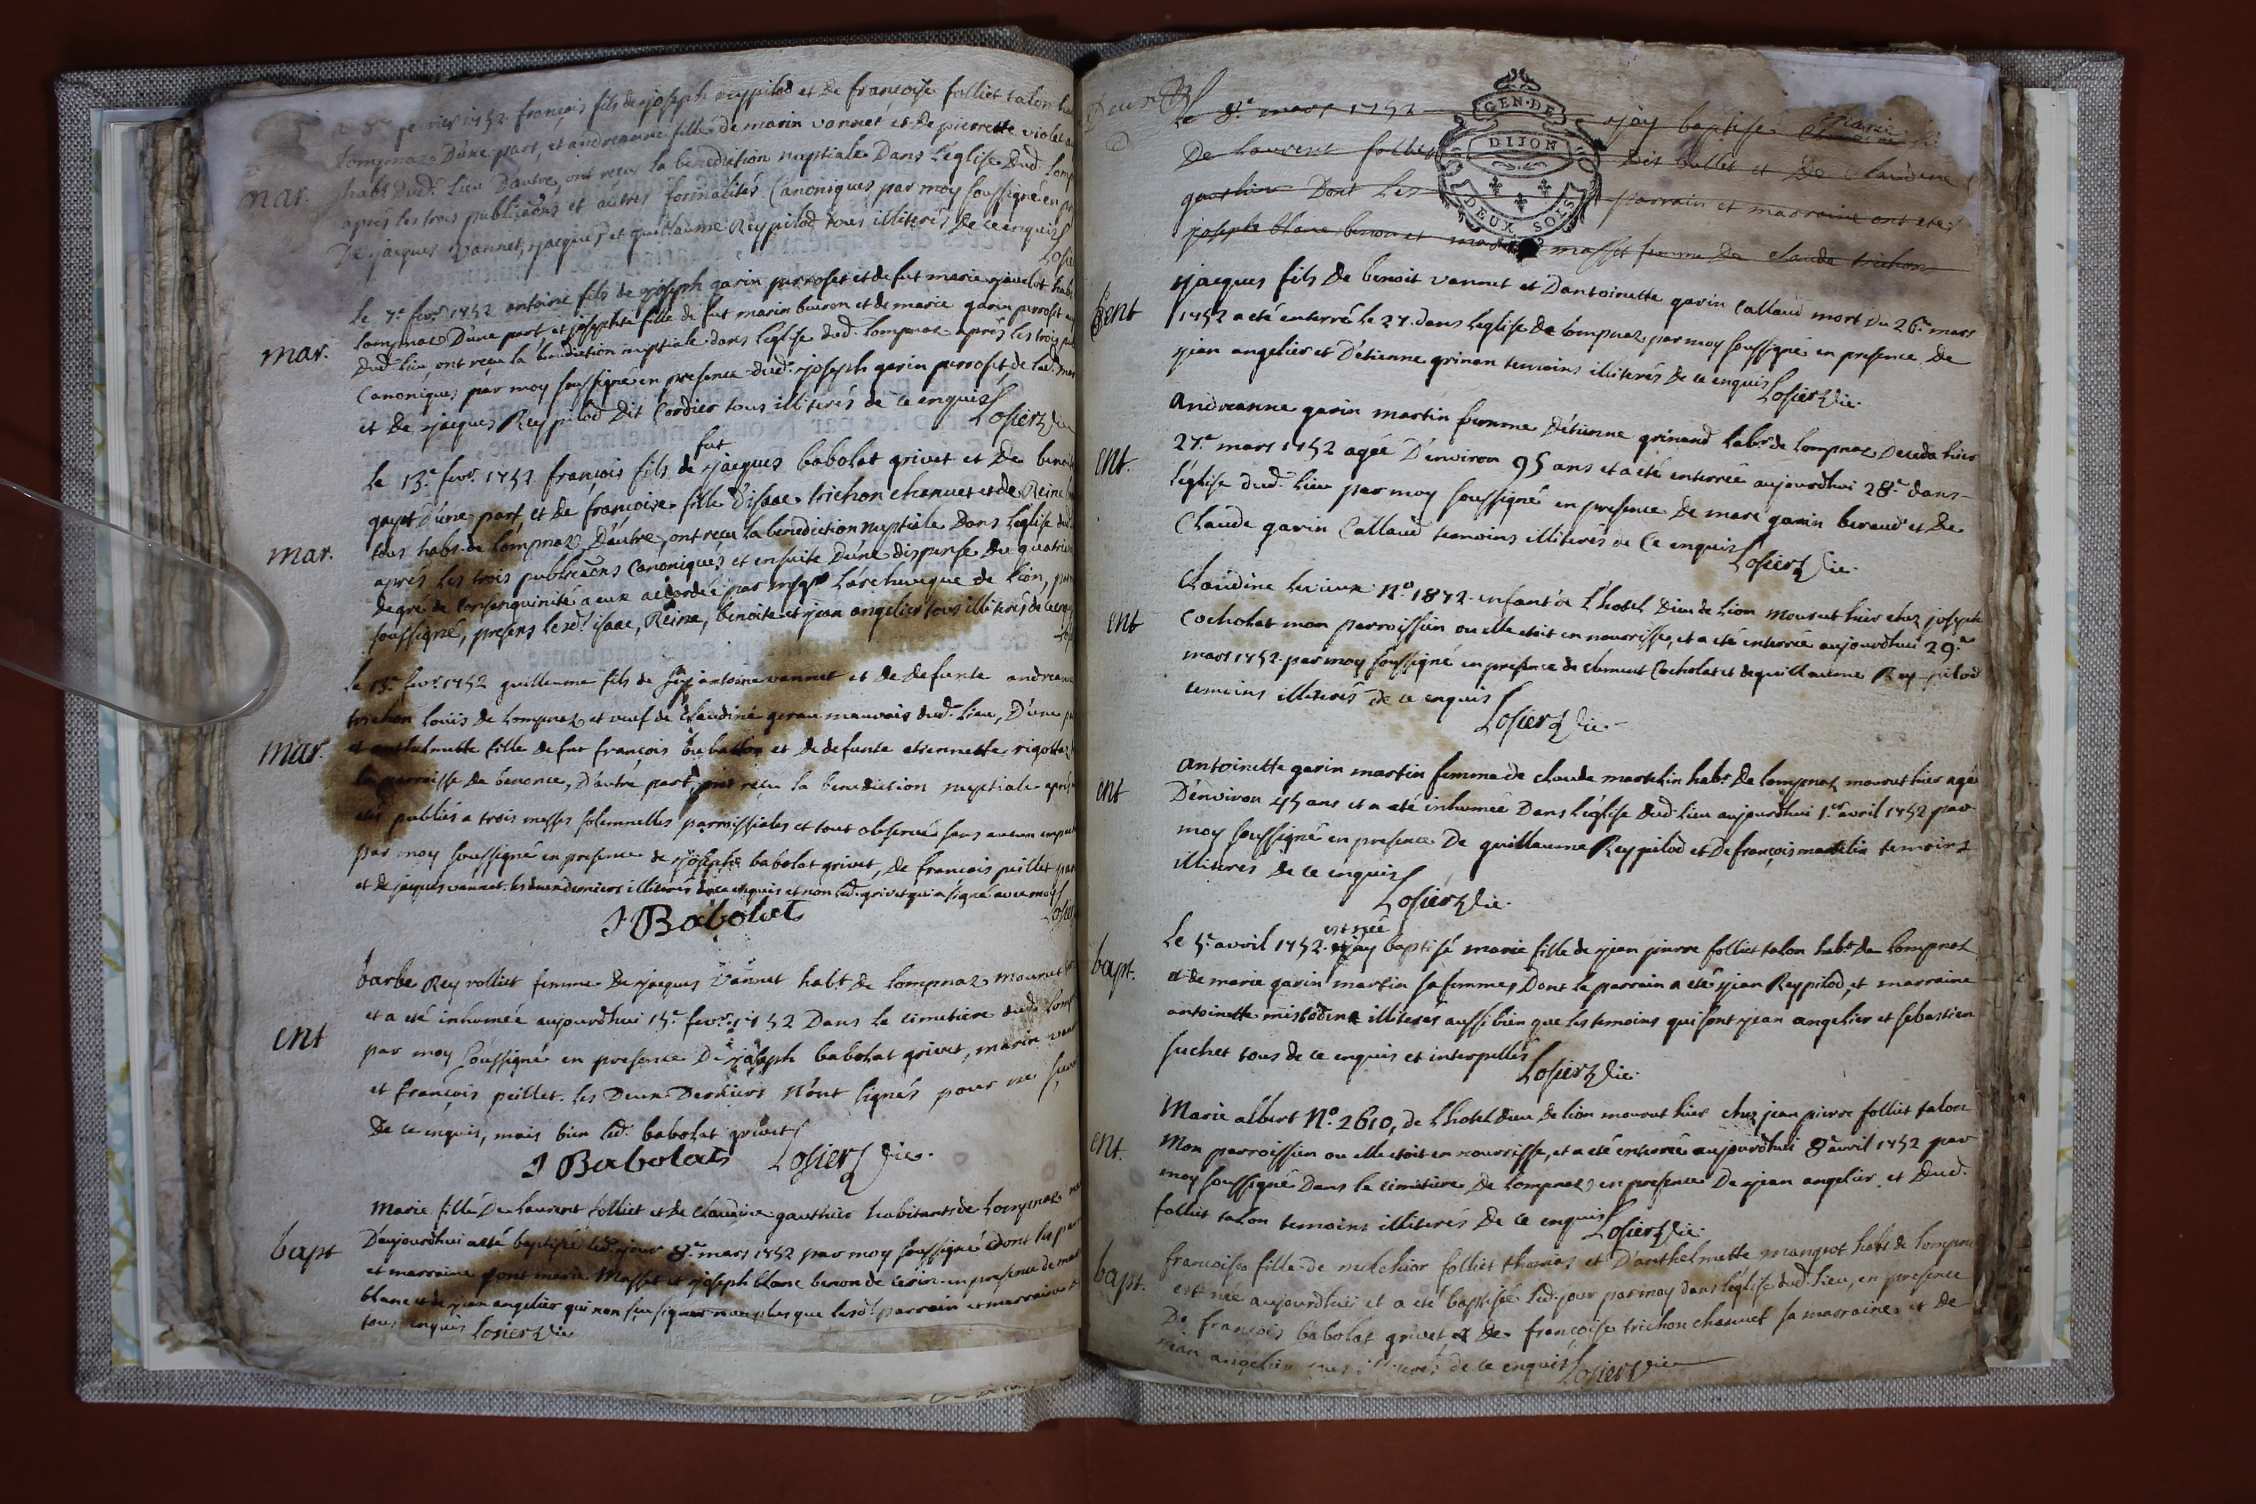 fevrier 1752 françois fils de joseph reypilod et de françoise folliet talon
lompnaz D'une part, et andreanne fille de marin vannet et de pierrette violet
mar.
habts dud. Lieu D'autre, ont receu la benediction nuptiale Dans L'église dud. Lomp
après les trois publicaōns et autres formalités Canoniques par moy soussigné en pr
De jacques vannet, jacques et guillaume Reypilod tous illiterés de ce enquis
Losie
Le 7e fevr. 1752 antoine fils de joseph garin perroset et de fut marie
lompnaz D'une part, et josephte fille de fut marin buron et de marie garin perroset
mar.
dud. lieu, ont receu la benediction nuptiale dans l'église dud. lompnaz après les trois
Canoniques par moy soussigné en presence dud. joseph garin perroset, de lad.
et de jacques Reypilod Dit Cordier tous illiterés de ce enquis
Losier Vic
fut
Le 13.e fevr. 1752 francois fils de jacques babolat grivet et De benoit
gayet d'une part, et de françoise fille d'isaac trichon chanuet et de Reine
mar.
tous habs de lompnaz, D'autre, ont receu la benediction nuptiale Dans L'église dud.
après les trois publicaōns Canoniques et ensuite D'une dispense du quatrie
degré de Consanguinité a eux accordée par msgr L'archeveque de Lion, par
soussigné, presens lesd. isaac, Reine, benoite et jean angelier tous illiterés de ce enq
Le 13.e fevr. 1752 guillaume fils de antoine vannet et de defunte andreanne
trichon louis de lompnaz et veuf de Claudine gerau mauvais dud. Lieu, D'une p
mar.
et anthelmette fille de fut françois et de defunte etiennette rigottaz
la parroisse de benonce, D'autre part, ont receu la benediction nuptiale après
etés publiés a trois messes solemnelles parroissiales et tout observé sans aucun empe
par moy soussigné en presence de joseph babolat grivet, de francois peillet
et de jacques vannet. les deux derniers illiterés de ce enquis et non led. grivet qui a signé avec moy
J Babolat
Losier
barbe Rey rolliet femme de jacques vannet habt de lompnaz mourut
et a eté inhumée aujourdhui 15.e fevr. 1752 Dans le cimetiere dud. Lomp
ent
par moy soussigné en presence De joseph babolat grivet, marin vann
et françois peillet. les Deux Derniers N'ont signés pour ne sçav
De ce enquis, mais bien led. babolat grivet
J Babolat Losier Vic.
Marie fille De Laurent folliet et de Claudine gauthier habitants de Lompnaz
bapt
D'aujourdhui a eté baptisée led. jour 8.e mars 1752 par moy soussigné dont les par
et marraine sont marie Masset et joseph blanc benon de cerin en presence de
blanc et de jean angelier qui non sceu signer non plus que lesd. parrain et marraine
tous enquis Losier Vic
Deux
Le 8.e mars 1752 jay baptisé marie
GEN. DE
DIJON
DEUX SOLS
De Laurent folliet Dit et De Claudine
gauthier Dont Les parrain et marraine ont etes
joseph blanc benon et masset femme De claude trichon
ent
jacques fils De benoit vannet et D'antoinette garin Callaud mort du 26.e mars
1752 a eté enterré le 27. dans L'eglise de lompnaz par moy soussigné en presence De
jean angelier et D'etienne grinan temoins illiterés De ce enquis Losier Vic.
andreanne garin martin femme d'étienne grinand habt. de lompnaz Deceda hier
ent.
27.e mars 1752 agée D'environ 95 ans et a eté enterrée aujourdhui 28.e dans
L'église dud. lieu par moy soussigné en presence De marc garin beraud et De
Claude garin Callaud temoins illiterés de Ce enquis Losier Vic.
Claudine N.o 1872. enfant de L'hotel Dieu de Lion Mourut hier chez joseph
ent
Cocholat mon parroissien ou elle etoit en nourrisse, et a eté enterrée aujourdhui 29.e
mars 1752. par moy soussigné en presence de Clement Cocholat et de guillaume Reypilod
temoins illiterés de ce enquis
Losier Vic.
antoinette garin martin femme de claude martelin habt De lompnaz mourut hier agée
ent
D'environ 45 ans et a eté inhumée Dans L'église Dud. Lieu aujourdhui 1.er avril 1752 par
moy soussigné en presence De guillaume Reypilod et De françois martelin temoins
illiterés de ce enquis
Losier Vic.
est née
Le 5.e avril 1752. jay baptisé marie fille de jean pierre folliet talon habt. de lompnaz
bapt.
et de marie garin martin sa femme, Dont le parrain a eté jean Reypilod, et marraine
antoinette misbodin illiterés aussi bien que les temoins qui sont jean angelier et sebastien
suchet tous de ce enquis et interpellés
Losier Vic.
Marie albert N.o 2610, de L'hotel dieu de Lion mourut hier chez jean pierre folliet talon
ent.
Mon parroissien ou elle etoit en nourrisse, et a eté enterrée aujourdhui 8.e avril 1752 par
moy soussigné Dans le cimitiere De lompnaz en presence De jean angelier, et Dud.
folliet talon temoins illiterés De ce enquis
Losier Vic.
françoise fille de melchior folliet thomas et D'anthelmette mangrot habt de lompnaz
bapt.
est née aujourdhui et a eté baptisée led. jour par moy dans l'église dud. lieu, en presence
De françois babolat grivet et De francoise trichon chanuet sa marraine, et de
jean angelier tous illiterés de ce enquis Losier Vic